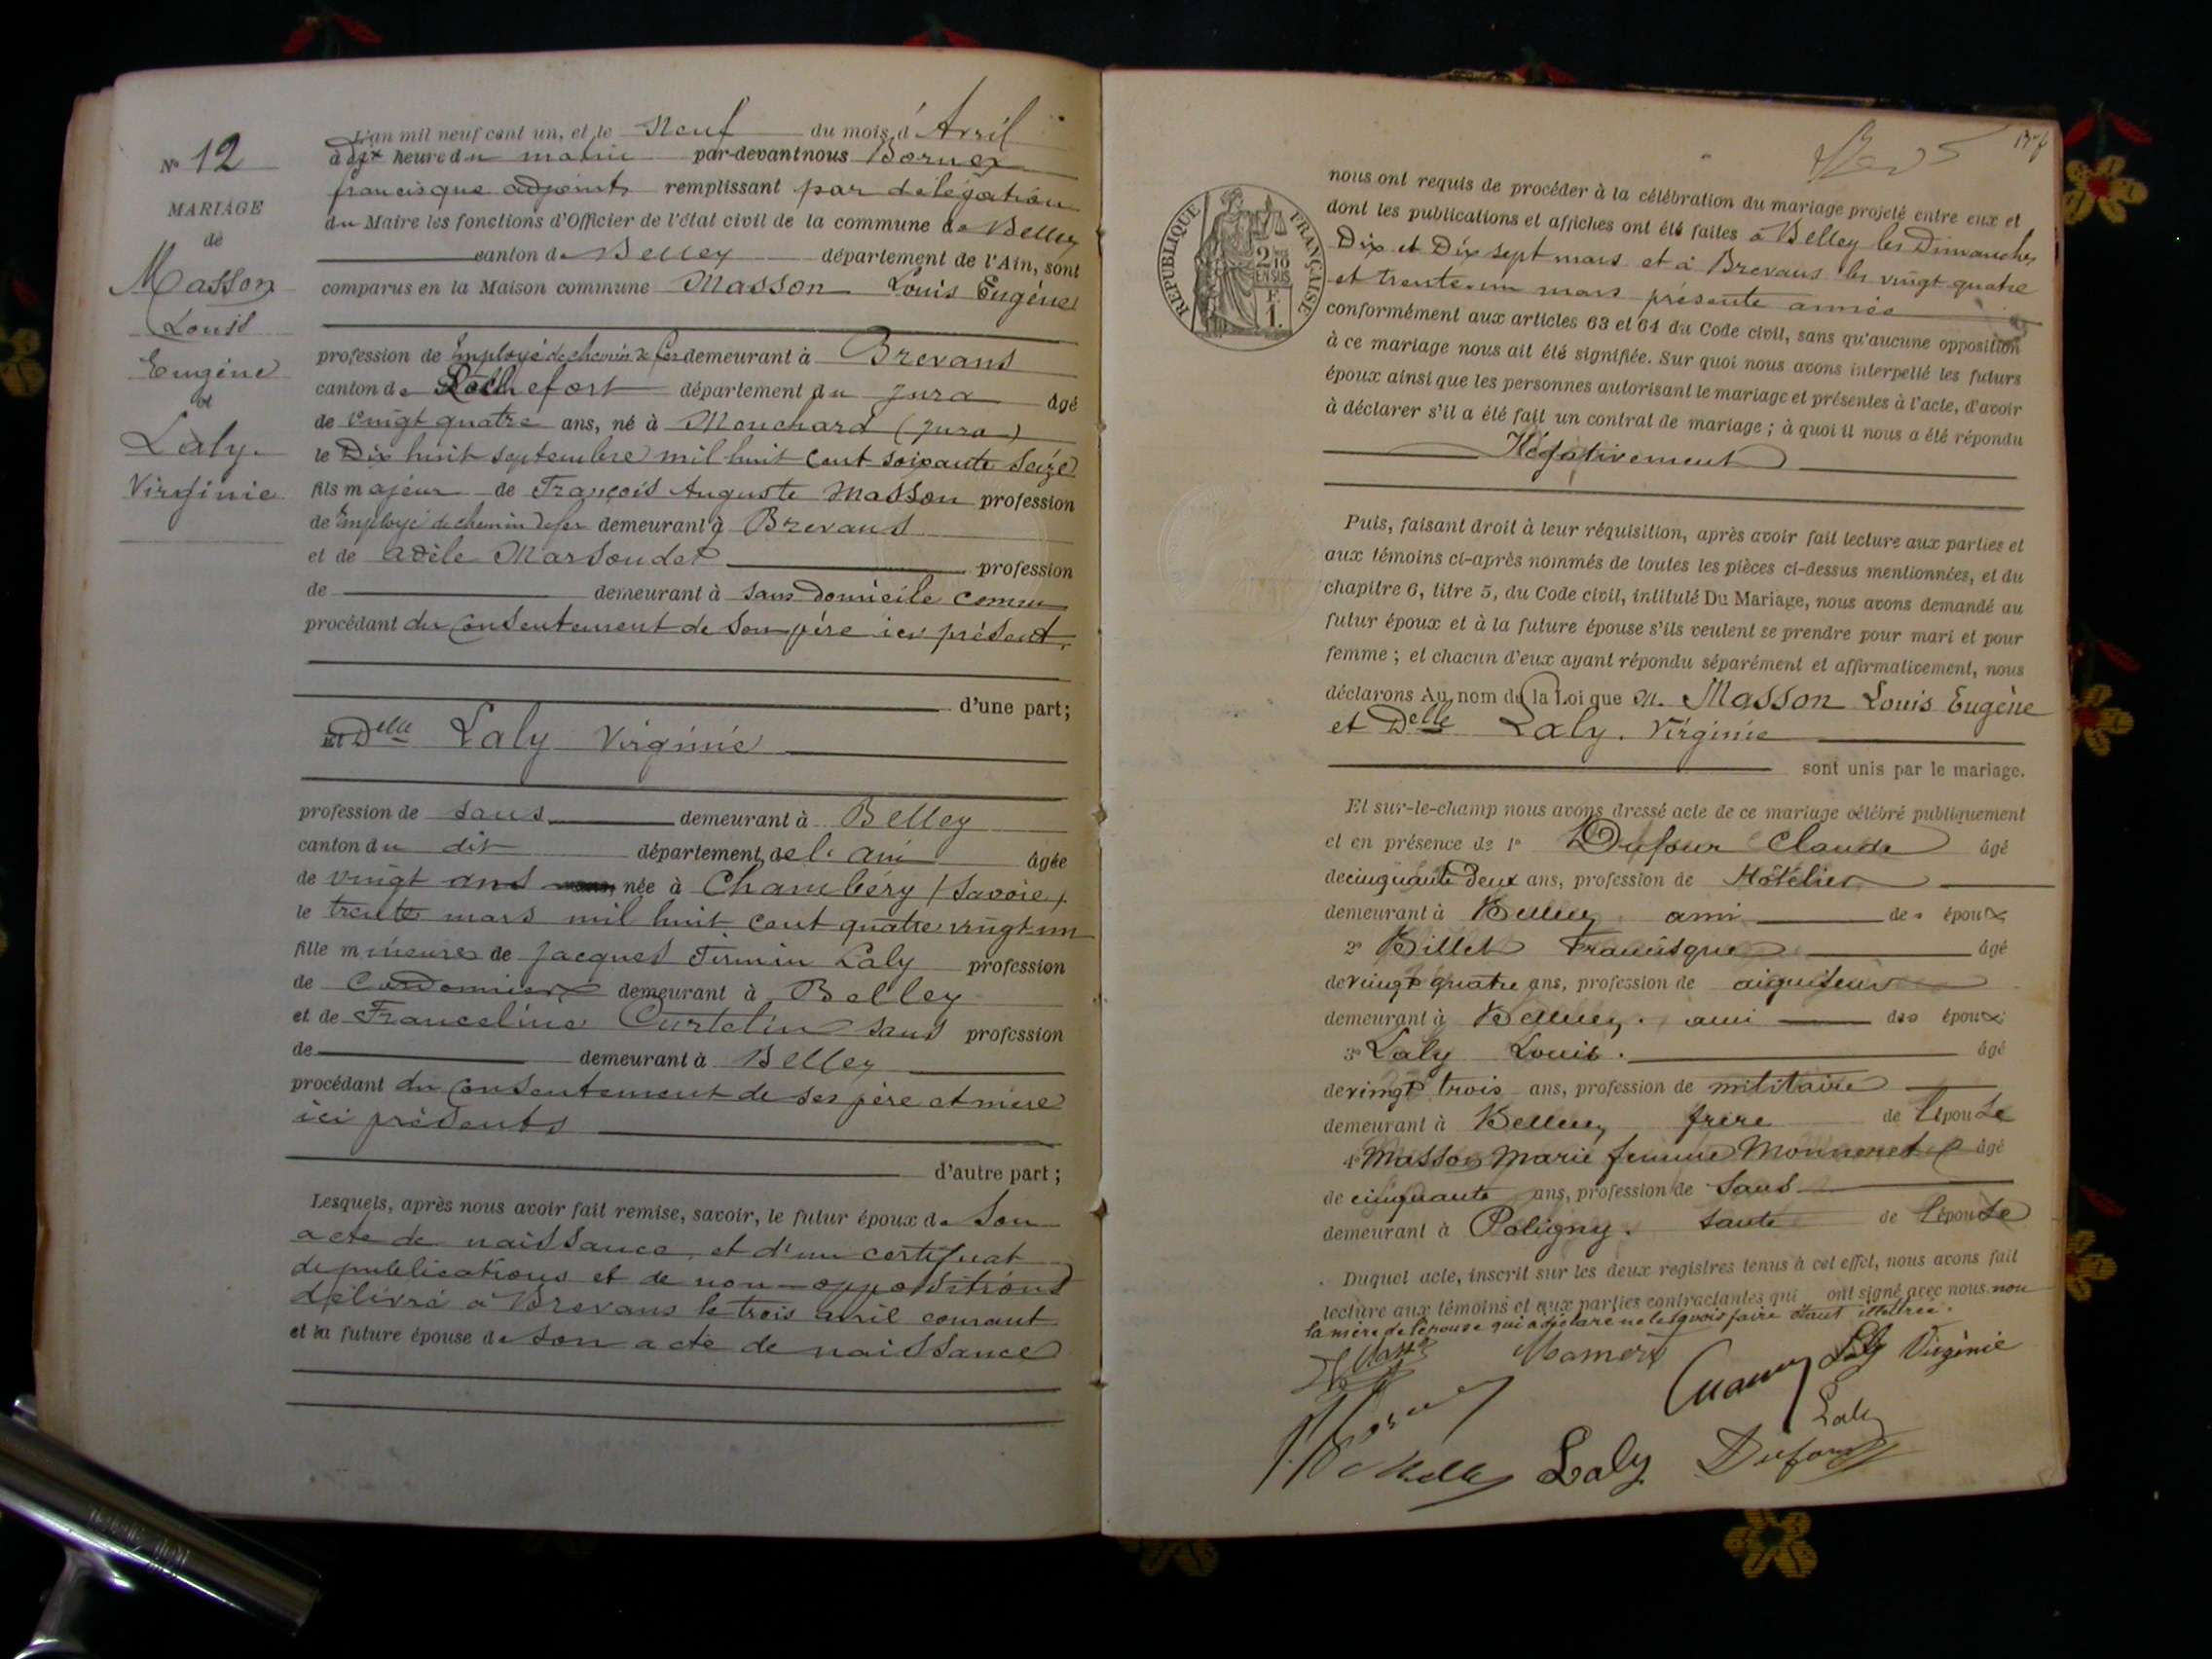 N° 12
MARIAGE
de
Masson
Louis
Eugène
et
Laly.
Virginie
L'an mil neuf cent un, et le Neuf du mois d'Avril
à dix heure du matin par-devant nous Bornex
francisque adjoint remplissant par délégation
du Maire les fonctions d'Officier de l'état civil de la commune de Belley
canton de Belley département de l'Ain, sont
comparus en la Maison commune Masson Louis Eugène
profession de Employé de chemin de fer demeurant à Brevans
canton de Rochefort département du Jura âgé
de vingt quatre ans, né à Mouchard (Jura)
le Dix huit septembre mil huit cent soixante seize
fils majeur de François Auguste Masson profession
de Employé de chemin de fer demeurant à Brevans
et de Adèle Marsoudet profession
de demeurant à sans domicile connu
procédant du consentement de son père ici présent.
d'une part;
Et Delle Laly Virginie
profession de sans demeurant à Belley
canton du dit département de l'Ain âgée
de vingt ans née à Chambéry (Savoie)
le trente mars mil huit cent quatre vingt un
fille mineure de Jacques Firmin Laly profession
de Cordonnier demeurant à Belley
et de Franceline Curtelin sans profession
de demeurant à Belley
procédant du consentement de ses père et mère
ici présents
d'autre part;
Lesquels, après nous avoir fait remise, savoir, le futur époux de son
acte de naissance, et d'un certificat
de publications et de non-oppositions
délivré à Brevans le trois avril courant
et la future épouse de son acte de naissance
RÉPUBLIQUE FRANÇAISE
2 10mes
EN SUS
F.
1.
nous ont requis de procéder à la célébration du mariage projeté entre eux et
dont les publications et affiches ont été faites à Belley les Dimanches
Dix et Dix sept mars et à Brevans les vingt quatre
et trente-un mars présente année
conformément aux articles 63 et 64 du Code civil, sans qu'aucune opposition
à ce mariage nous ait été signifiée. Sur quoi nous avons interpellé les futurs
époux ainsi que les personnes autorisant le mariage et présentes à l'acte, d'avoir
à déclarer s'il a été fait un contrat de mariage; à quoi il nous a été répondu
Négativement
Puis, faisant droit à leur réquisition, après avoir fait lecture aux parties et
aux témoins ci-après nommés de toutes les pièces ci-dessus mentionnées, et du
chapitre 6, titre 5, du Code civil, intitulé Du Mariage, nous avons demandé au
futur époux et à la future épouse s'ils veulent se prendre pour mari et pour
femme; et chacun d'eux ayant répondu séparément et affirmativement, nous
déclarons Au nom de la Loi que M. Masson Louis Eugène
et Delle Laly. Virginie
sont unis par le mariage.
Et sur-le-champ nous avons dressé acte de ce mariage célébré publiquement
et en présence de 1° Dufour Claude âgé
de cinquante deux ans, profession de Hôtelier
demeurant à Belley. ami des époux
2° Billet Francisque âgé
de vingt quatre ans, profession de aiguiseur
demeurant à Belley. ami des époux
3° Laly Louis. âgé
de vingt trois ans, profession de militaire
demeurant à Belley frère de l'épouse
4° Masson Marie femme Monneret âgé
de cinquante ans, profession de sans
demeurant à Poligny. tante de l'épouse
Duquel acte, inscrit sur les deux registres tenus à cet effet, nous avons fait
lecture aux témoins et aux parties contractantes qui ont signé avec nous non
la mère de l'épouse qui a déclaré ne le savoir faire étant illettrée.
Laly Virginie
Laly
Laly Dufour